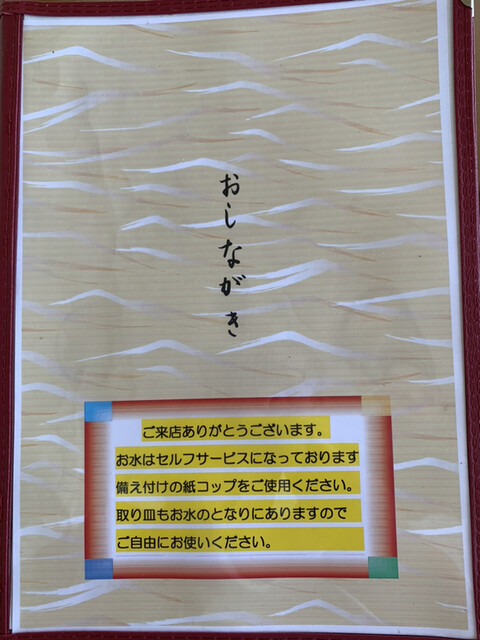 おしながき
ご来店ありがとうございます。
お水はセルフサービスになっております
備え付けの紙コップをご使用ください。
取り皿もお水のとなりにありますので
ご自由にお使いください。